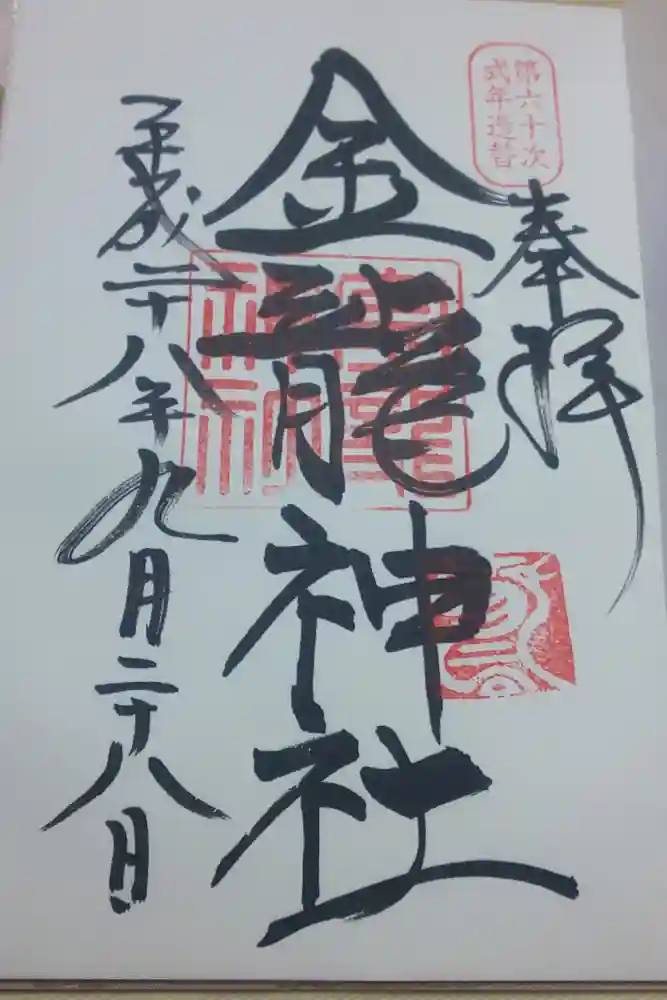 第六十次
式年造替
奉拝
金龍神社
平成二十八年九月二十八日